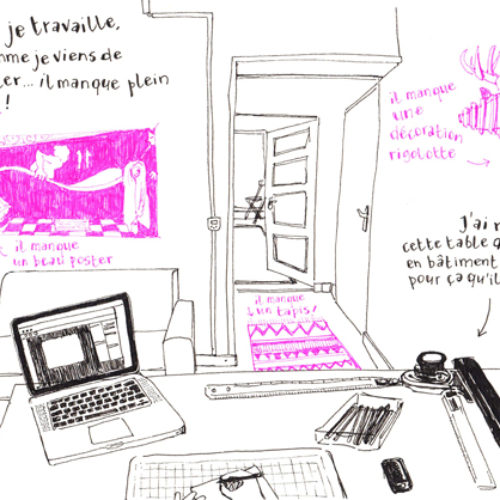 je travaille,
me je viens de
er... il manque plein
!
il manque
un beau poster
il manque
un tapis!
il manque
une
décoration
rigolotte
J'ai
cette table
en bâtiment
pour ça qu'il